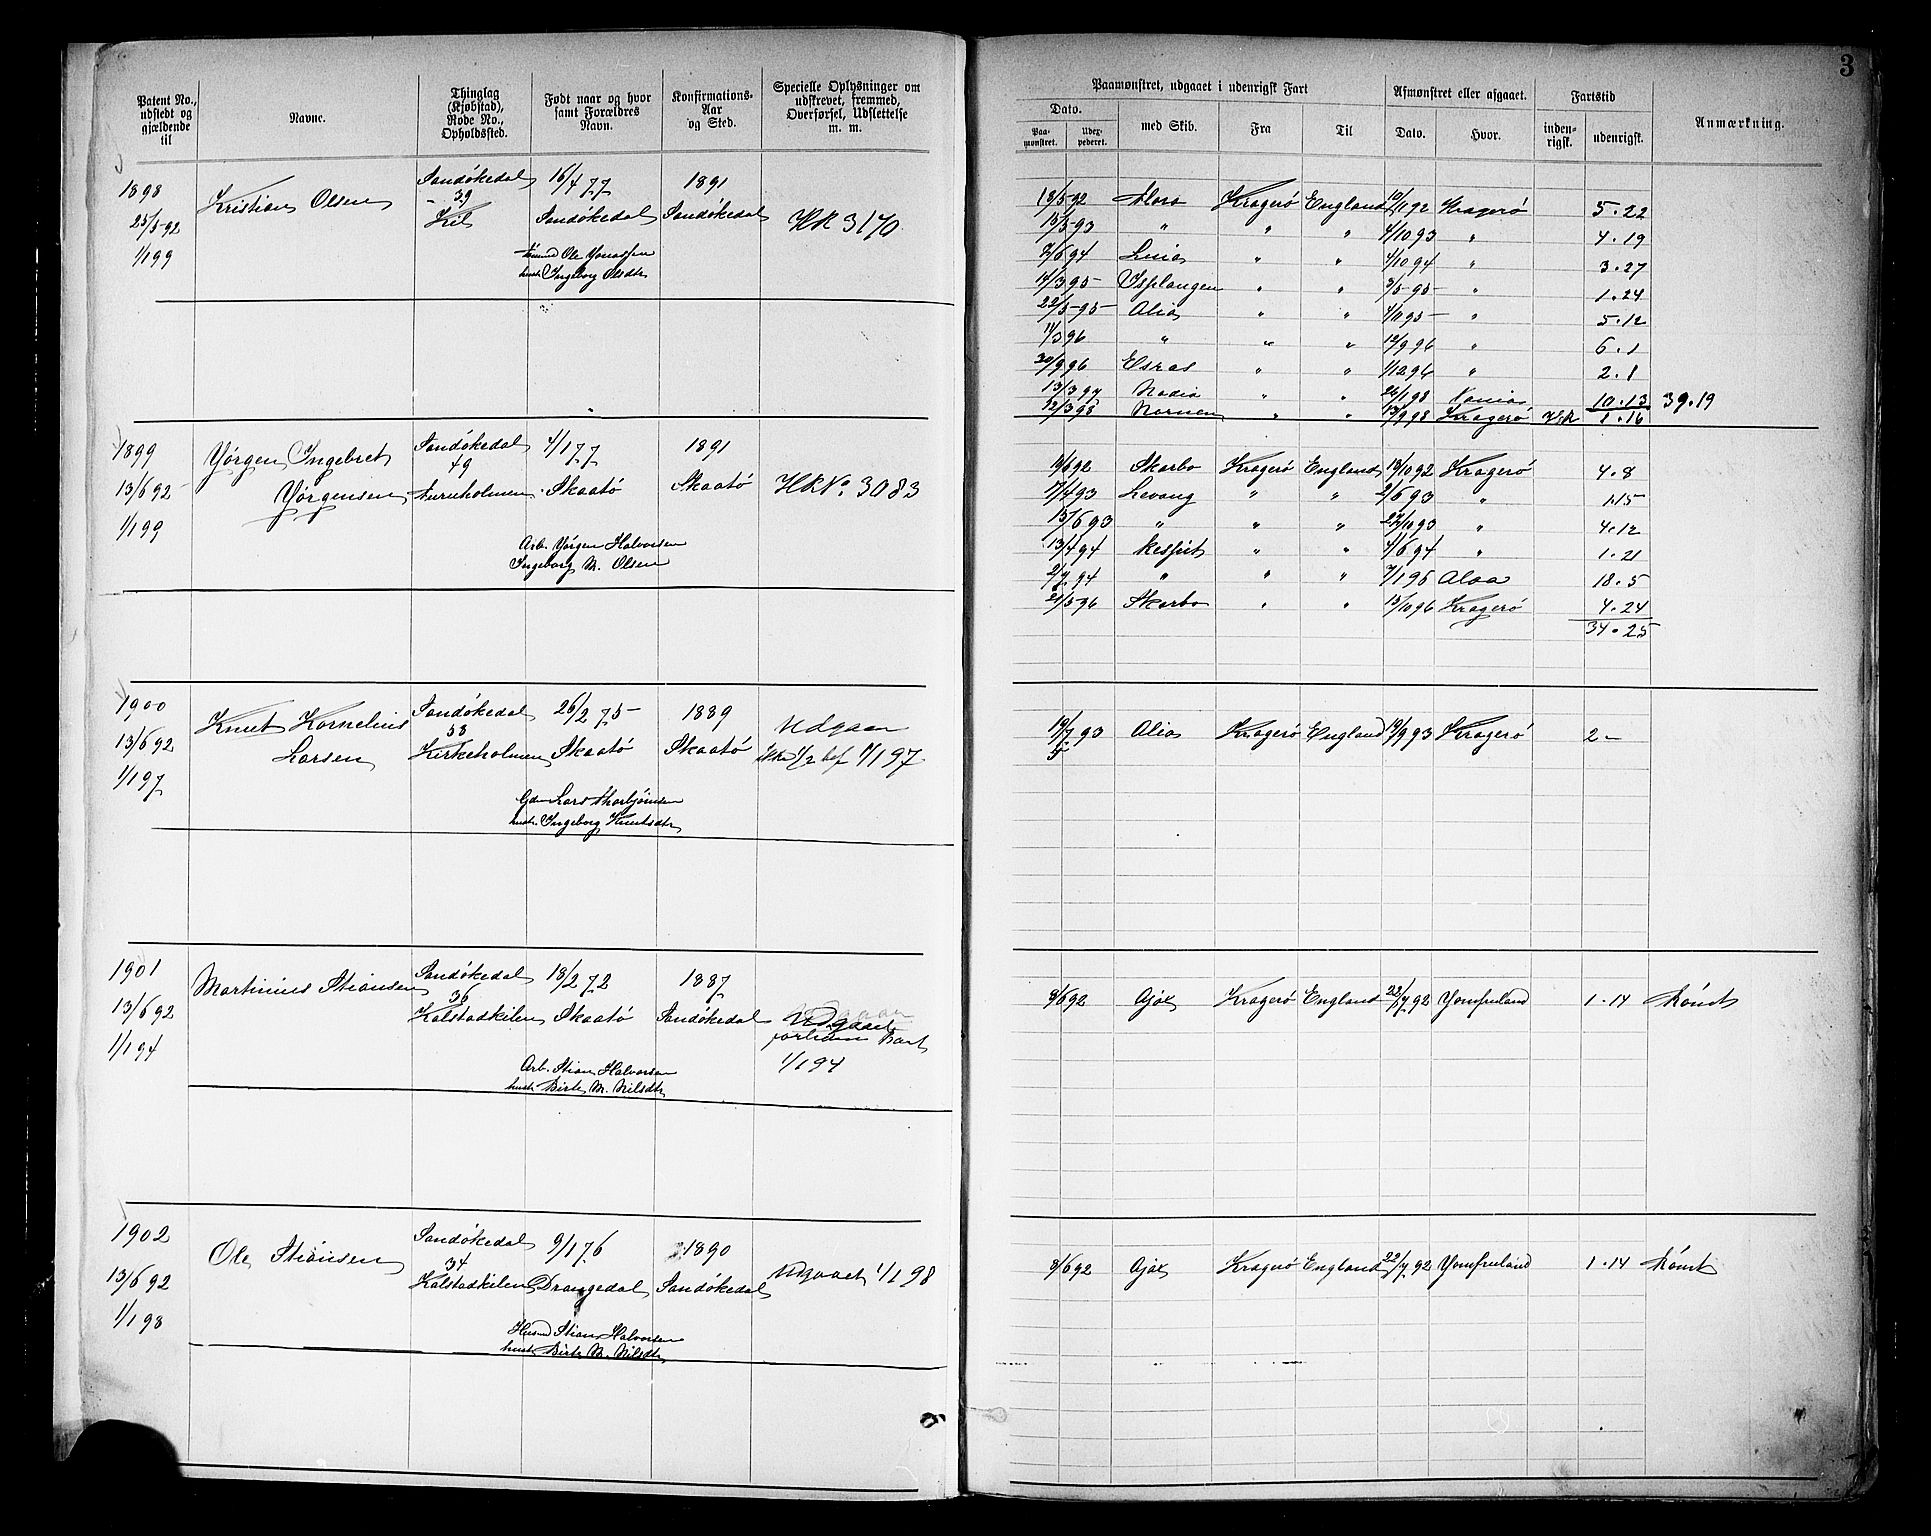 3
Patent No., udstedt og gjældende til
Navne.
Thinglag (Kjøbstad), Rode No., Opholdssted.
Født naar og hvor samt Forældres Navn.
Konfirmations-Aar og Sted.
Specielle Oplysninger om udskrevet, fremmed, Overførsel, Udslettelse m. m.
Paamønstret, udgaaet i udenrigsk Fart
Dato.
Paa-mønstret.
Udex-pederet.
med Skib.
Fra
Til
Afmønstret eller afgaaet.
Dato.
Hvor.
Fartstid
inden-rigsk.
udenrigsk.
Anmærkning.
1898 Kristian Olsen Sandøkedal 16/4 77 1891
25/5-92 - 39
Kil Sandøkedal Sandøkedal HR 3170
1/1 99 Ole Jonassen
hustr. Ingeborg Olsdtr
13/5-92 Kragerø England 92 Kragerø 5.22
15/5-93 " " " 4/10 93 " 4.19
2/6 94 " " 4/10 94 " 3.27
14/3 95- " " 3/5-95- " 1.24
22/5-95- Alia " " 4/10 95- " 5.12
11/3 96 " " " 12/9 96 " 6.1
30/9 96 Esras " " 1/12 96 " 2.1
13/3 97 Nadia " " 26/1 98 10.13 39.19
12/3 98 Nornen " " 13/9 98 Kragerø 1.16
1899 Yørgen Ingebret Sandøkedal 4/1 77 1891
49
13/6 92- Yørgensen Skaatø Skaatø HR No. 3083
1/1 99
Arb. Yørgen Halvorsen
Ingeborg M. Olsen
10/6 92 Skarbo Kragerø England 19/10 92 Kragerø 4.8
17/4 93 Levang " " 2/6 93 " 1.15
15/6 93 " " " 27/10 93 " 4.12
13/4 94 Respit " " 4/6 94 " 1.21
2/7 94 " " " 7/1 96 Aloa 18.5
21/5-96 Skarbo " " 15/10 96 Kragerø 4.24
34.25
1900 Knut Kornelius Sandøkedal 26/2 75- 1889 Udgaar
53
13/6 92 Larsen Kirkeholmen Skaatø Skaatø 1/2 bef 1/1 97
1/1 97
Lars Thorbjørnsen
hustr. Ingeborg Knutsdtr
19/7 93 Alia Kragerø England 19/9 93 Kragerø 2 -
1901 Martinius Stiansen Sandøkedal 18/2 72 1887
36
13/6 92 Kalstadkilen Skaatø Sandøkedal Udgaaet
1/1 94 1/1 94
Arb. Stian Halvorsen
hustr. Birte M. Nilsdtr
8/6 92 Ajax Kragerø England 22/7 92 Yomfruland 1.14 Rømt
1902 Ole Stiansen Sandøkedal 9/1 76 1890
34
13/6 92 Kalstadkilen Drangedal Sandøkedal Udgaaet 1/1 98
1/1 98
Husmd Stian Halvorsen
hustr. Birte M. Nilsdtr
8/6 92 Ajax Kragerø England 22/7 92 Yomfruland 1.14 Rømt